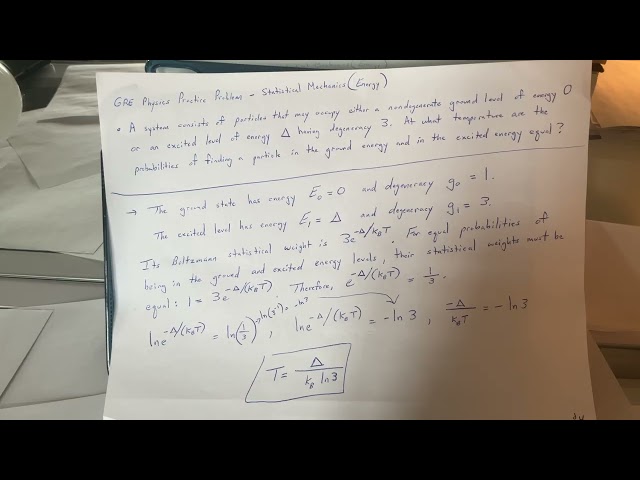 GRE Physics Practice Problem - Statistical Mechanics (Energy)
• A system consists of particles that may occupy either a nondegenerate ground level of energy 0
or an excited level of energy Δ having degeneracy 3. At what temperature are the
probabilities of finding a particle in the ground energy and in the excited energy equal?
→ The ground state has energy E₀ = 0 and degeneracy g₀ = 1.
The excited level has energy E₁ = Δ and degeneracy g₁ = 3.
Its Boltzmann statistical weight is 3e^(-Δ/k_BT). For equal probabilities of
being in the ground and excited energy levels, their statistical weights must be
equal: 1 = 3e^(-Δ/(k_BT)). Therefore, e^(-Δ/(k_BT)) = 1/3.
ln e^(-Δ/(k_BT)) = ln(1/3) → ln(3⁻¹) = -ln3, ln e^(-Δ/(k_BT)) = -ln3, -Δ/(k_BT) = -ln3
T = Δ/(k_B ln3)